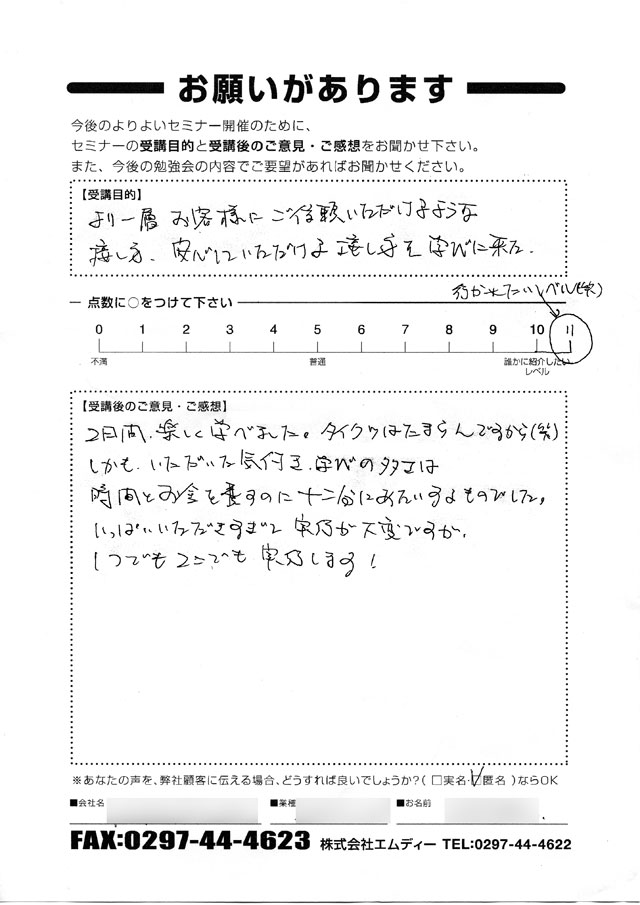 お願いがあります
今後のよりよいセミナー開催のために、
セミナーの受講目的と受講後のご意見・ご感想をお聞かせ下さい。
また、今後の勉強会の内容でご要望があればお聞かせください。
【受講目的】
より一層 お客様に ご信頼いただけるような
接し方、安心していただける接し方を学びに来た.
たいレベル(笑)
点数に○をつけて下さい
0 1 2 3 4 5 6 7 8 9 10 11
不満 普通 誰かに紹介したいレベル
【受講後のご意見・ご感想】
2日間、楽しく学べました。タイクツはたまらんですから(笑)
しかも、いただいた気付き、学びの多さは
時間とお金を費すのに十二分にあたいするものでした。
いっぱいいただきすぎて 実行が大変ですが、
1つでも2こでも 実行します!
※あなたの声を、弊社顧客に伝える場合、どうすれば良いでしょうか?( □実名・□匿名 )ならOK
■会社名 ■業種 ■お名前
FAX:0297-44-4623 株式会社エムディー TEL:0297-44-4622